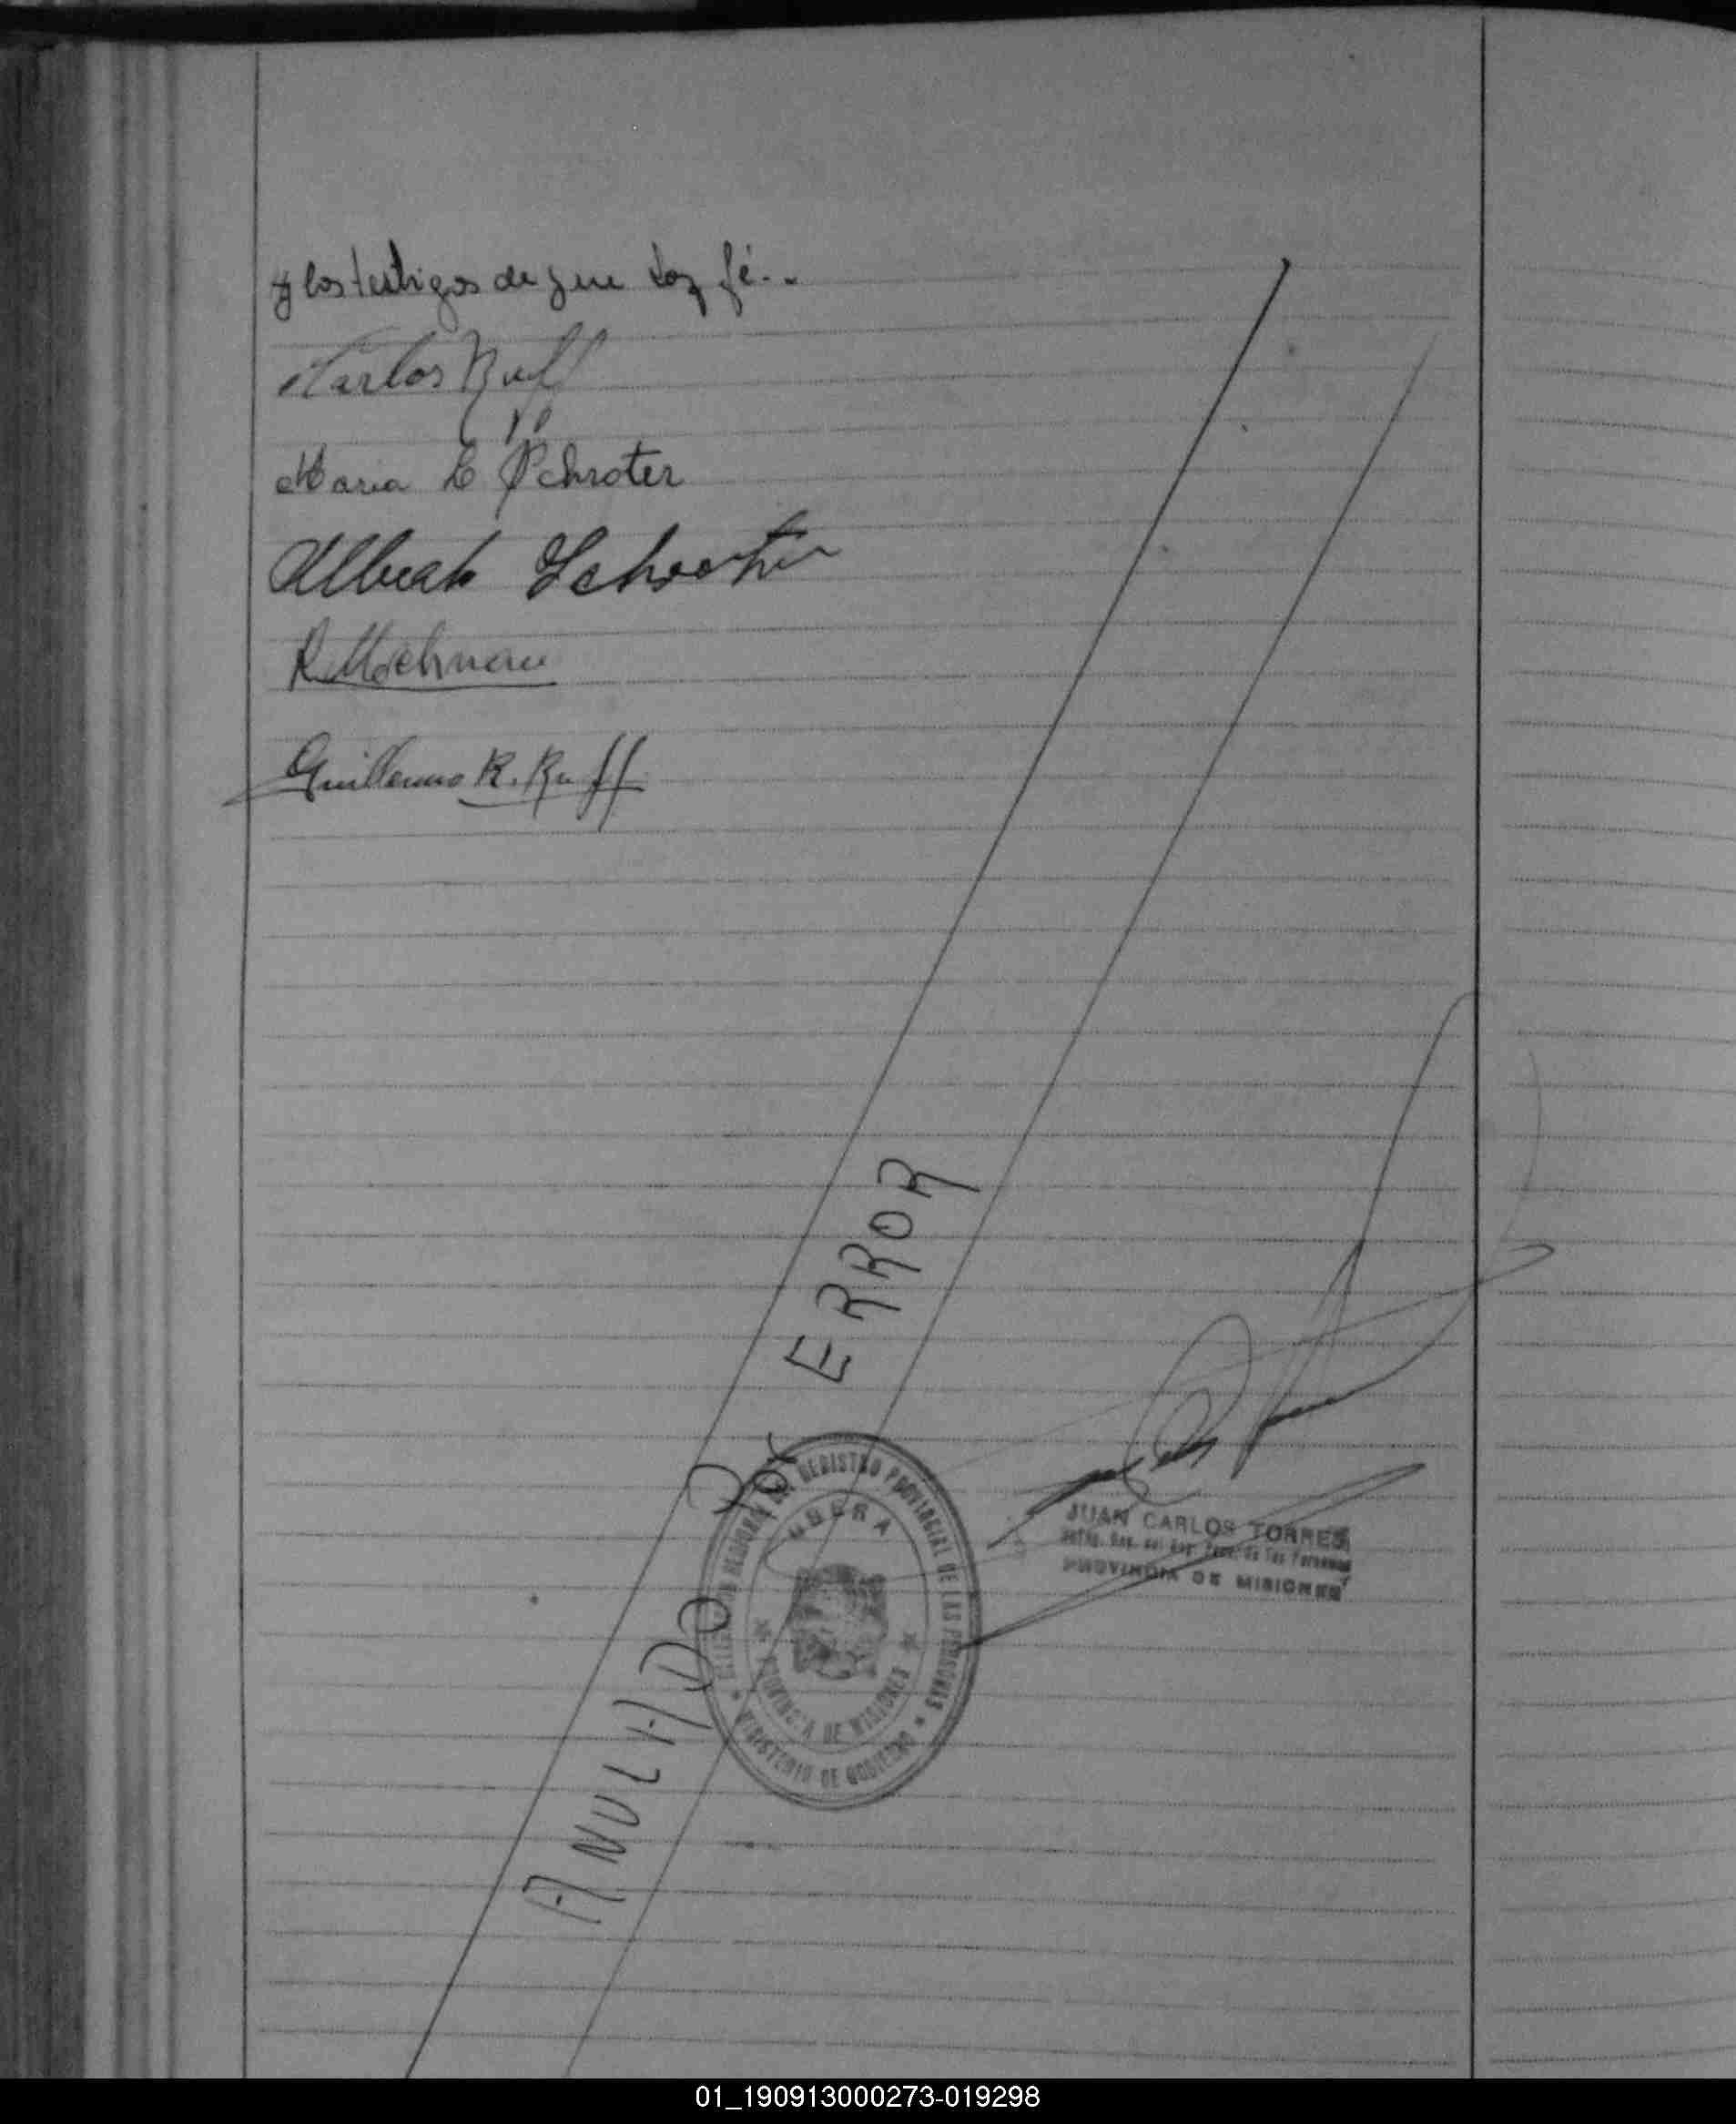 y los testigos de que doy fé.-
Carlos Ruff
Maria E Schroter
Schroeter
Guillermo R. Ruff
ANULADO POR ERROR
DELEGACION REGIONAL DEL REGISTRO PROVINCIAL DE LAS PERSONAS
OBERA
PROVINCIA DE MISIONES
MINISTERIO DE GOBIERNO
JUAN CARLOS TORRES
PROVINCIA DE MISIONES
01_190913000273-019298